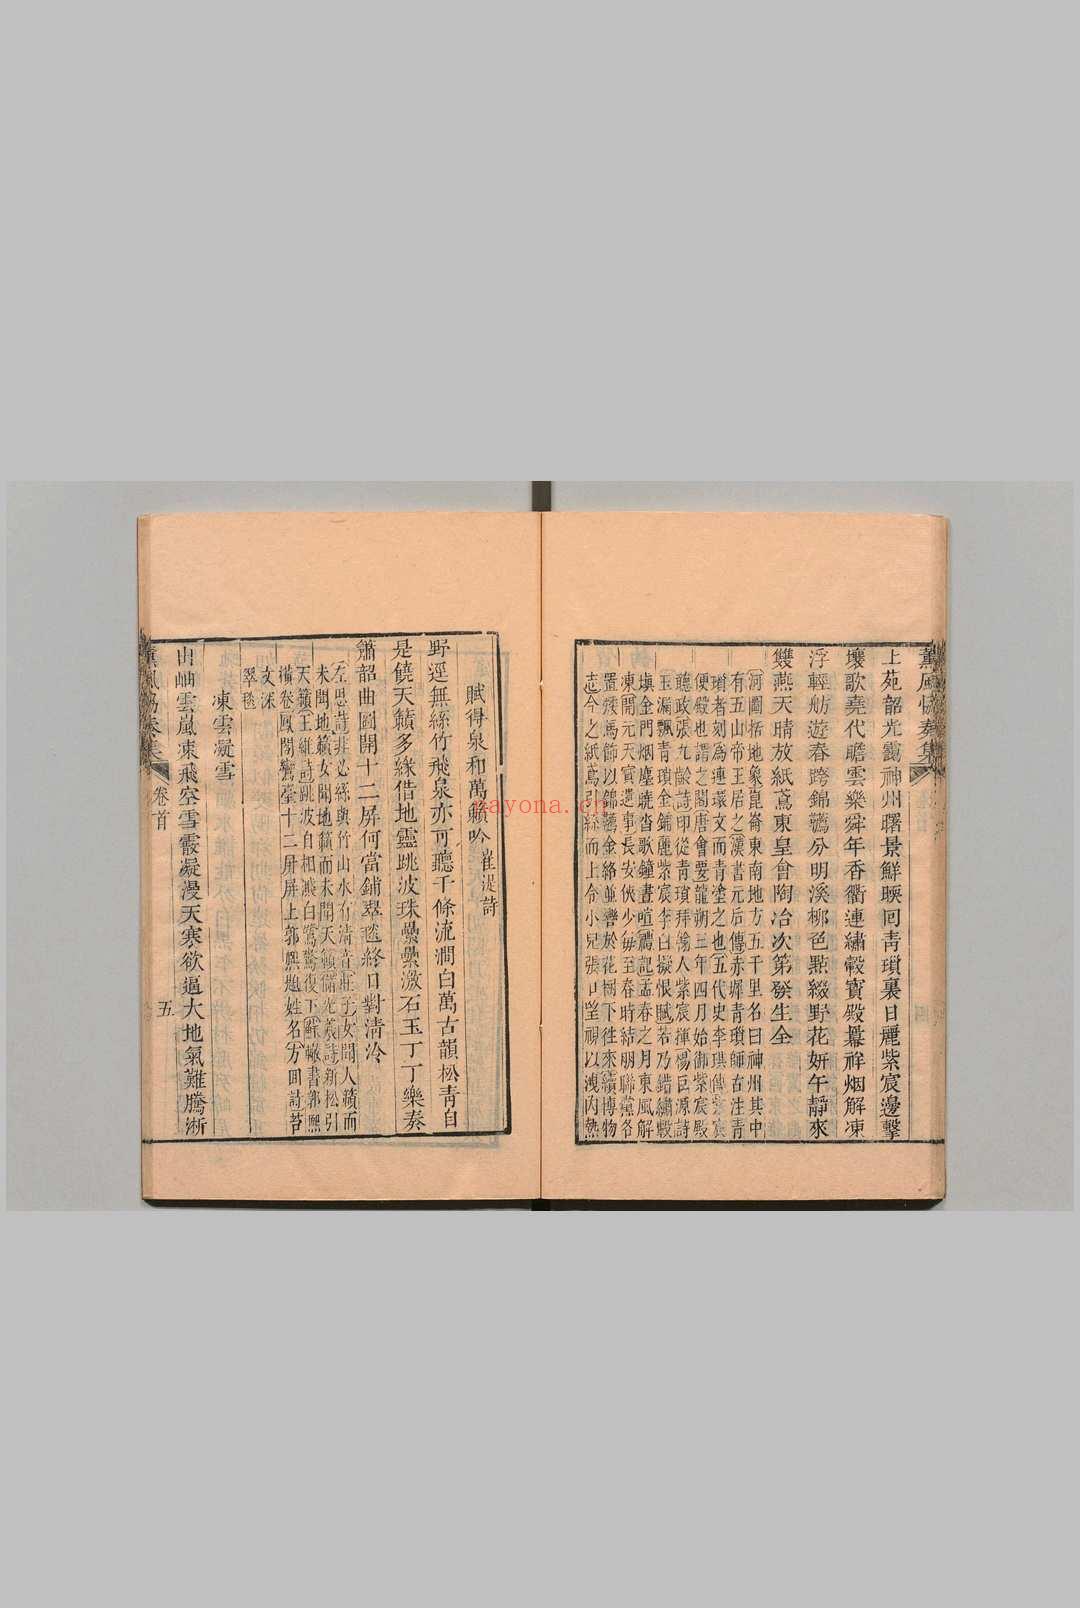 上苑韶光靄神州曙景鮮暎回青瑣裏日麗紫宸邊擊
壤歌堯代瞻雲樂舜年香衢連繡轂寶殿纂祥烟解凍
浮輕舫遊春跨錦韉分明溪柳色點綴野花妍午靜來
雙燕天晴放紙鳶東皇會陶冶次第發生全
河圖括地象崑崙東南地方五千里名曰神州其中
有五山帝王居之漢書元后傳赤墀青瑣師古注青
瑣者刻為連環文而青塗之也五代史李琪傳紫宸
便殿也謂之閣唐會要龍朔三年四月始御紫宸殿
聽政張九齡詩印從青瑣拜翰人紫宸揮楊巨源詩
玉漏飄青瑣金鋪麗紫宸李白擬恨賦若乃錯繡轂
填金門烟塵曉沓歌鐘晝喧禮記孟春之月東風解
凍開元天寶遺事長安俠少每至春時結朋聯黨各
置矮馬飾以錦韉金絡並轡於花樹下往來續博物
志今之紙鳶引絲而上令小兒張口望視以洩內熱
賦得泉和萬籟吟 崔湜詩
野逕無絲竹飛泉亦可聽千條流澗白萬古韻松青自
是饒天籟多緣借地靈跳波珠纍纍激石玉丁丁樂奏
簫韶曲圖開十二屏何當鋪翠毯終日對清泠
左思詩非必絲與竹山水有清音莊子女聞人籟而
未聞地籟女聞地籟而未聞天籟儲光羲詩新松引
天籟王維詩跳波自相濺白鷺驚復下辭林書郭熙
橫卷鳳閣鸞臺十二屏屏上郭熙題姓名方回詩苔
文深
翠毯
凍雲凝雪
出岫雲嵐凍飛空雪霰凝漫天寒欲逼大地氣難騰淅
卷首
五
nayona.cn